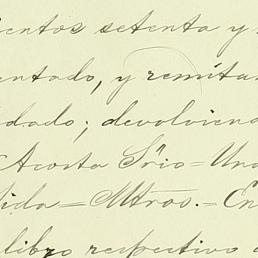 ientos setenta y
entado, y remita
dado; devolvien
Acosta Srio = Una
ida = Mtros. = En
libro respectivo